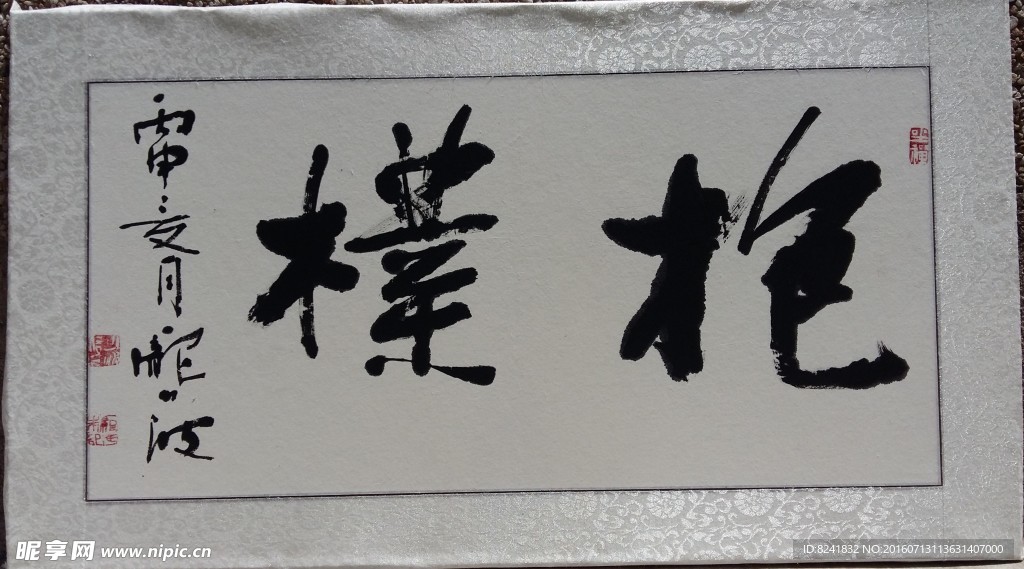 抱樸
丙申亥月
昵享网 www.nipic.cn
ID:8241832 NO:20160713113631407000